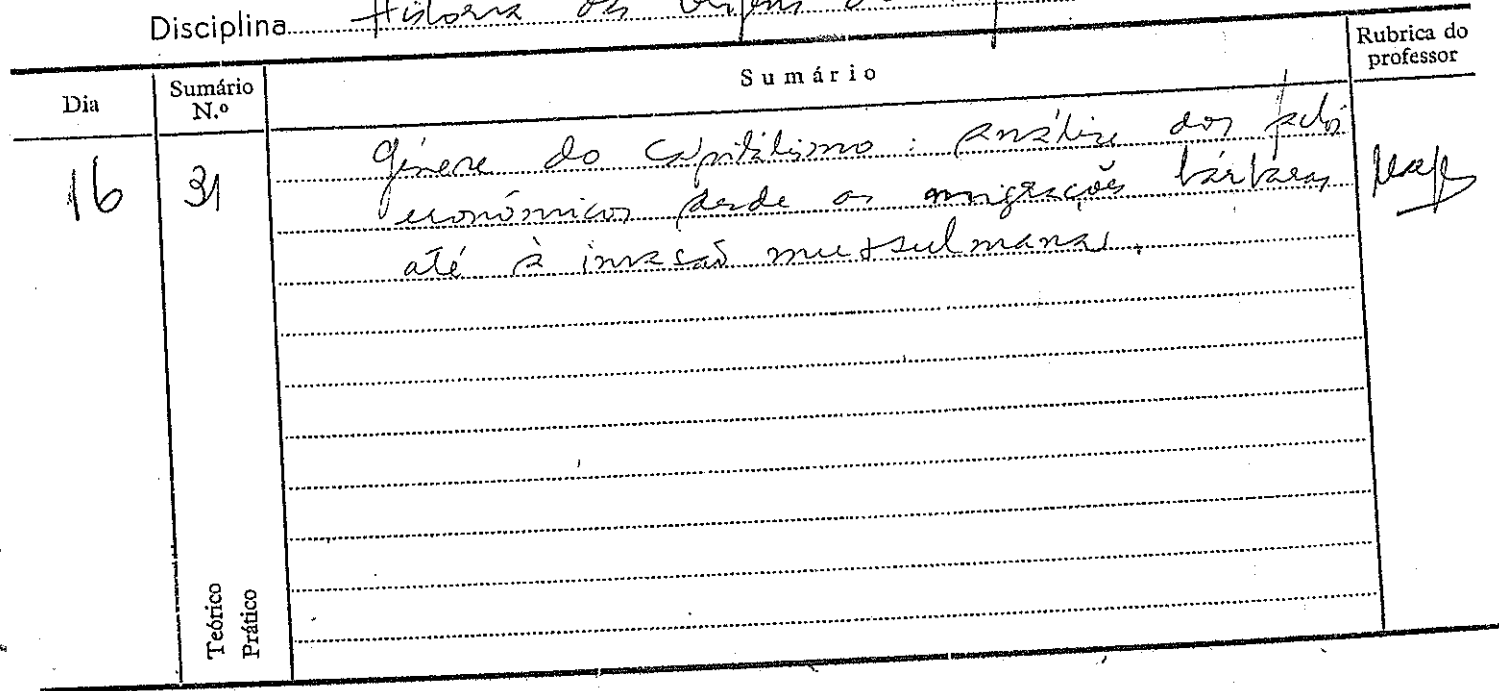 Disciplina História das Origens do
Dia
Sumário N.º
Sumário
Rubrica do professor
16
31
Génese do Capitalismo: análise dos
económicos desde as migrações bárbaras
até à invasão mussulmana.
Teórico
Prático